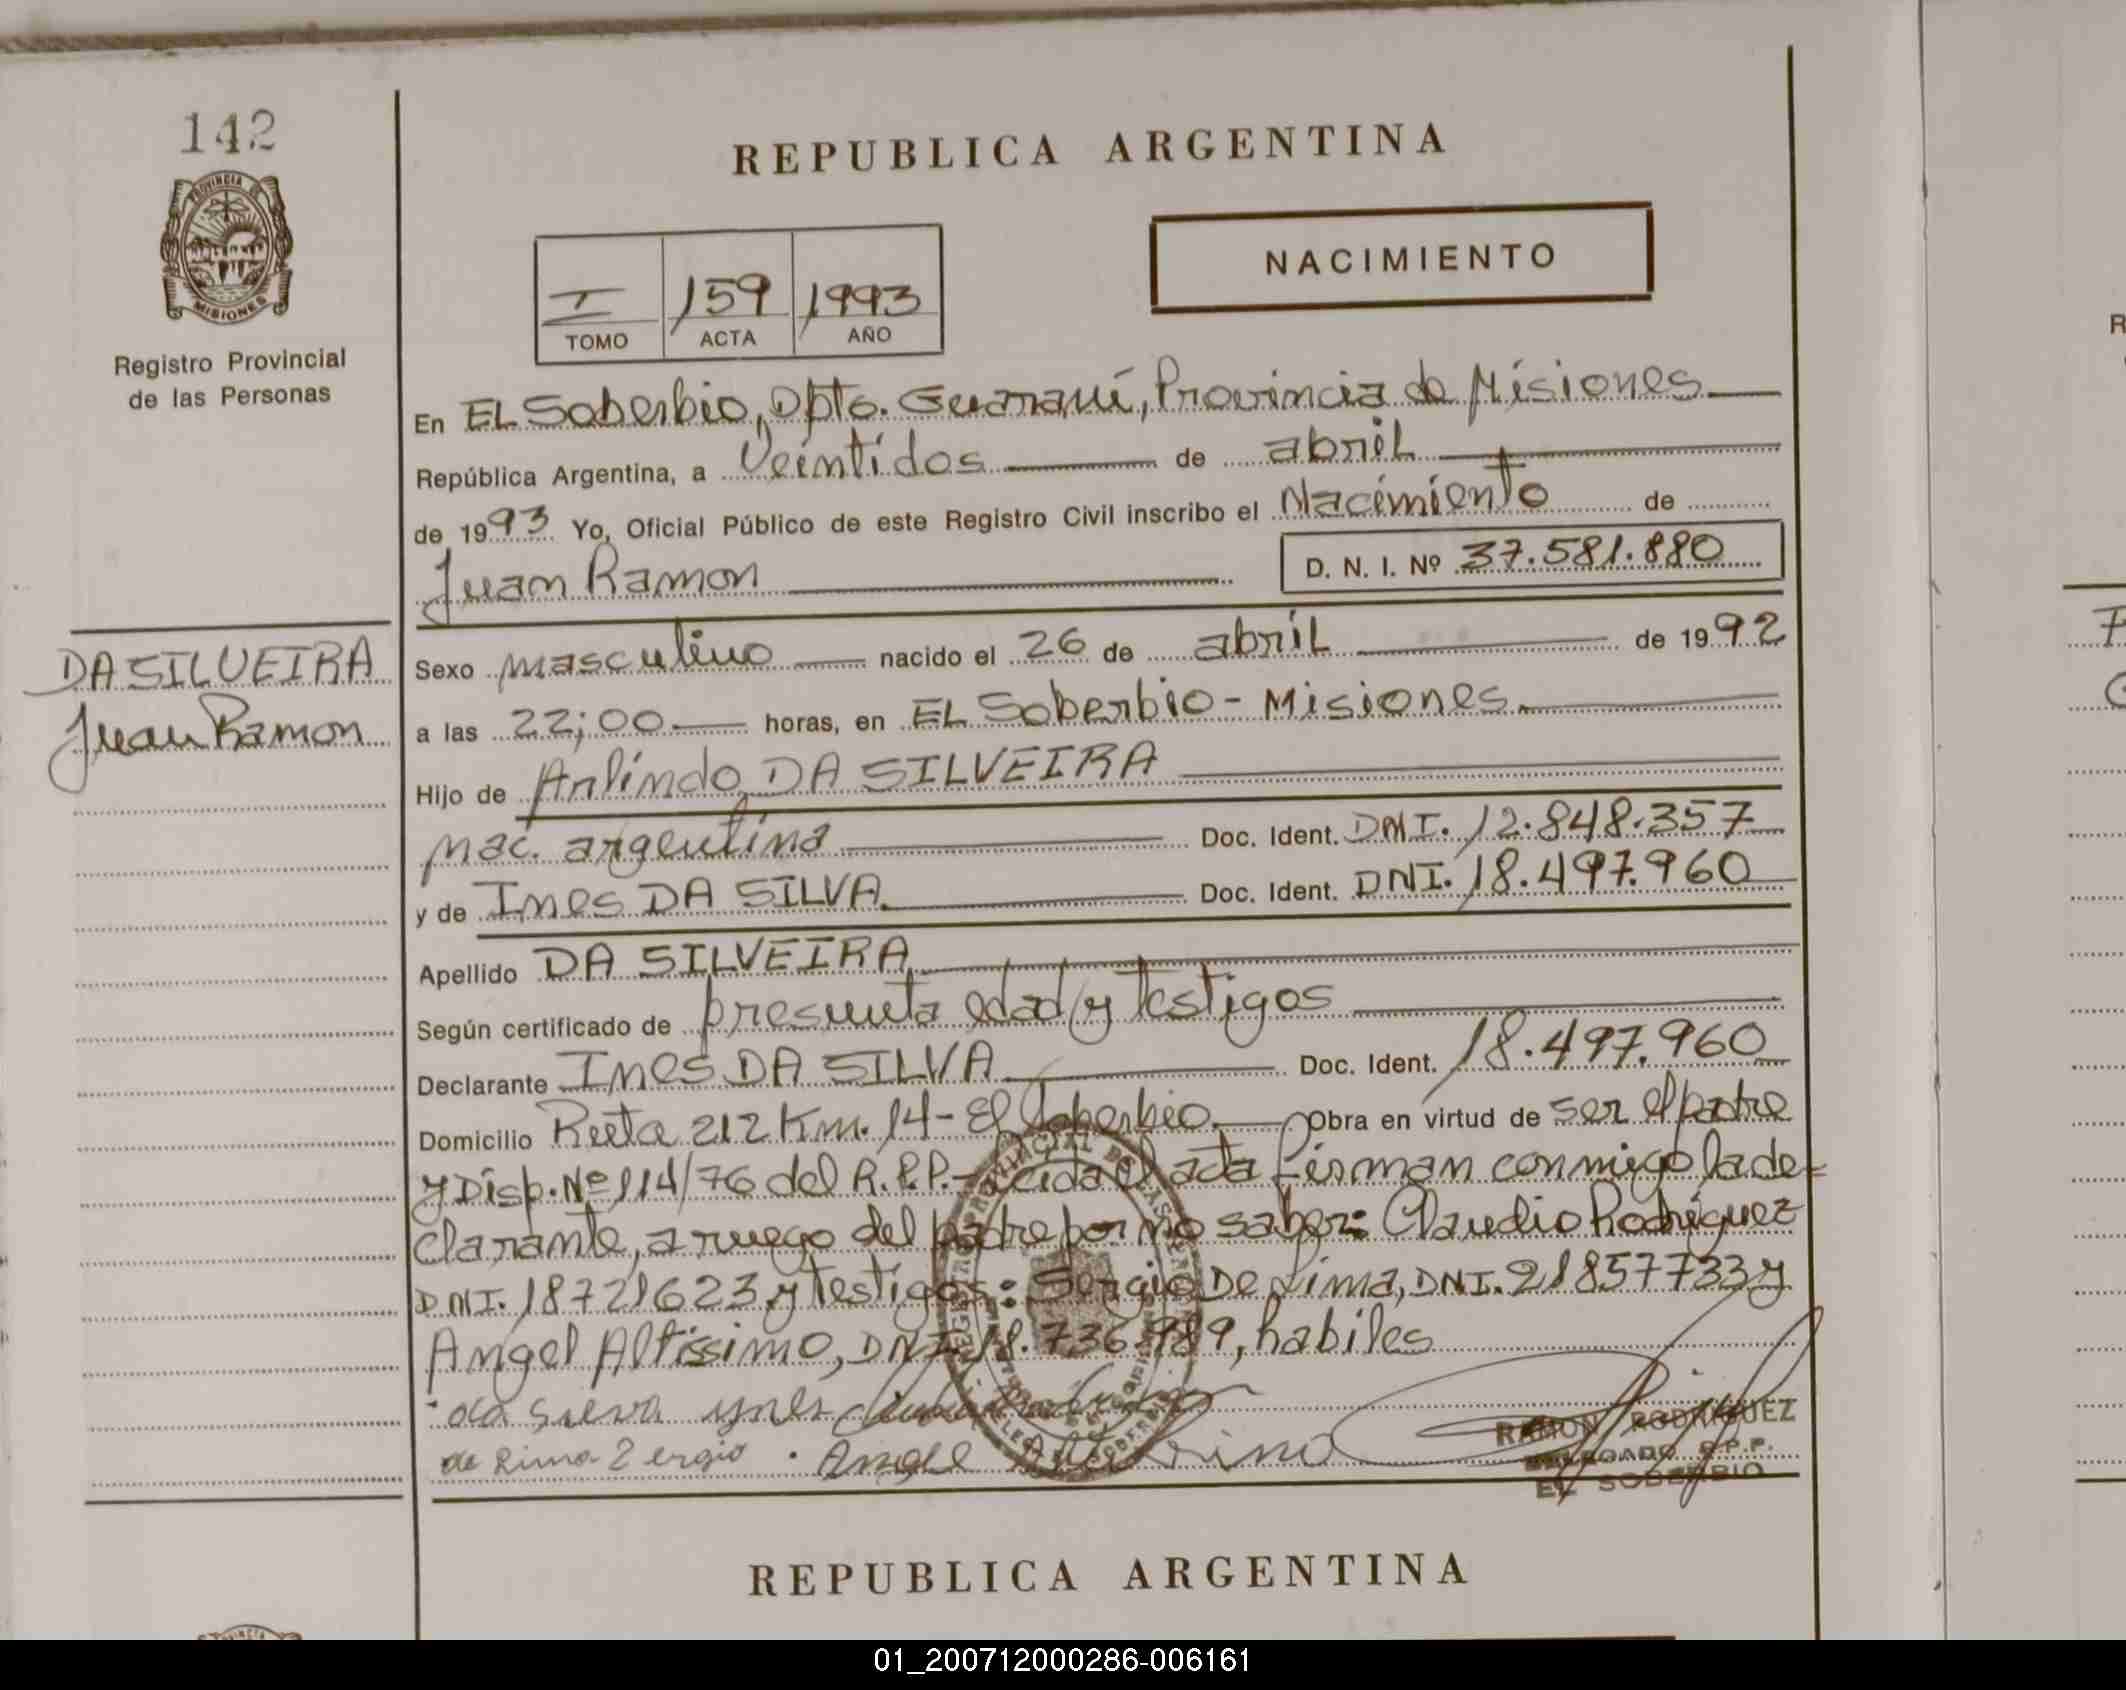 142
PROVINCIA DE
MISIONES
Registro Provincial
de las Personas
DA SILVEIRA
Juan Ramon
REPUBLICA ARGENTINA
NACIMIENTO
I 159 1993
TOMO ACTA AÑO
En EL Soberbio, Dpto. Guaraní, Provincia de Misiones
República Argentina, a Veintidos de abril
de 1993 Yo, Oficial Público de este Registro Civil inscribo el Nacimiento de
Juan Ramon D. N. I. Nº 37.581.880
Sexo masculino nacido el 26 de abril de 1992
a las 22;00 horas, en EL Soberbio - Misiones.
Hijo de Arlindo DA SILVEIRA
nac. argentina Doc. Ident. DNI. 12.848.357
y de Ines DA SILVA. Doc. Ident. DNI. 18.497.960
Apellido DA SILVEIRA
Según certificado de presunta edad y testigos
Declarante Ines DA SILVA Doc. Ident. 18.497.960
Domicilio Ruta 212 Km. 14 - El Soberbio. Obra en virtud de ser el padre
y Disp. Nº 114/76 del R.P.P. - Leída el acta firman conmigo la de-
clarante, a ruego del padre por no saber: Claudio Rodriguez
DNI. 18721623 y testigos: Sergio De Lima, DNI. 21857733 y
Angel Altissimo, DNI. 18.736.989, habiles
da silva ynes
de Lima Sergio . Angel
RAMON RODRIGUEZ
DELEGADO R.P.P.
EL SOBERBIO
REPUBLICA ARGENTINA
01_200712000286-006161